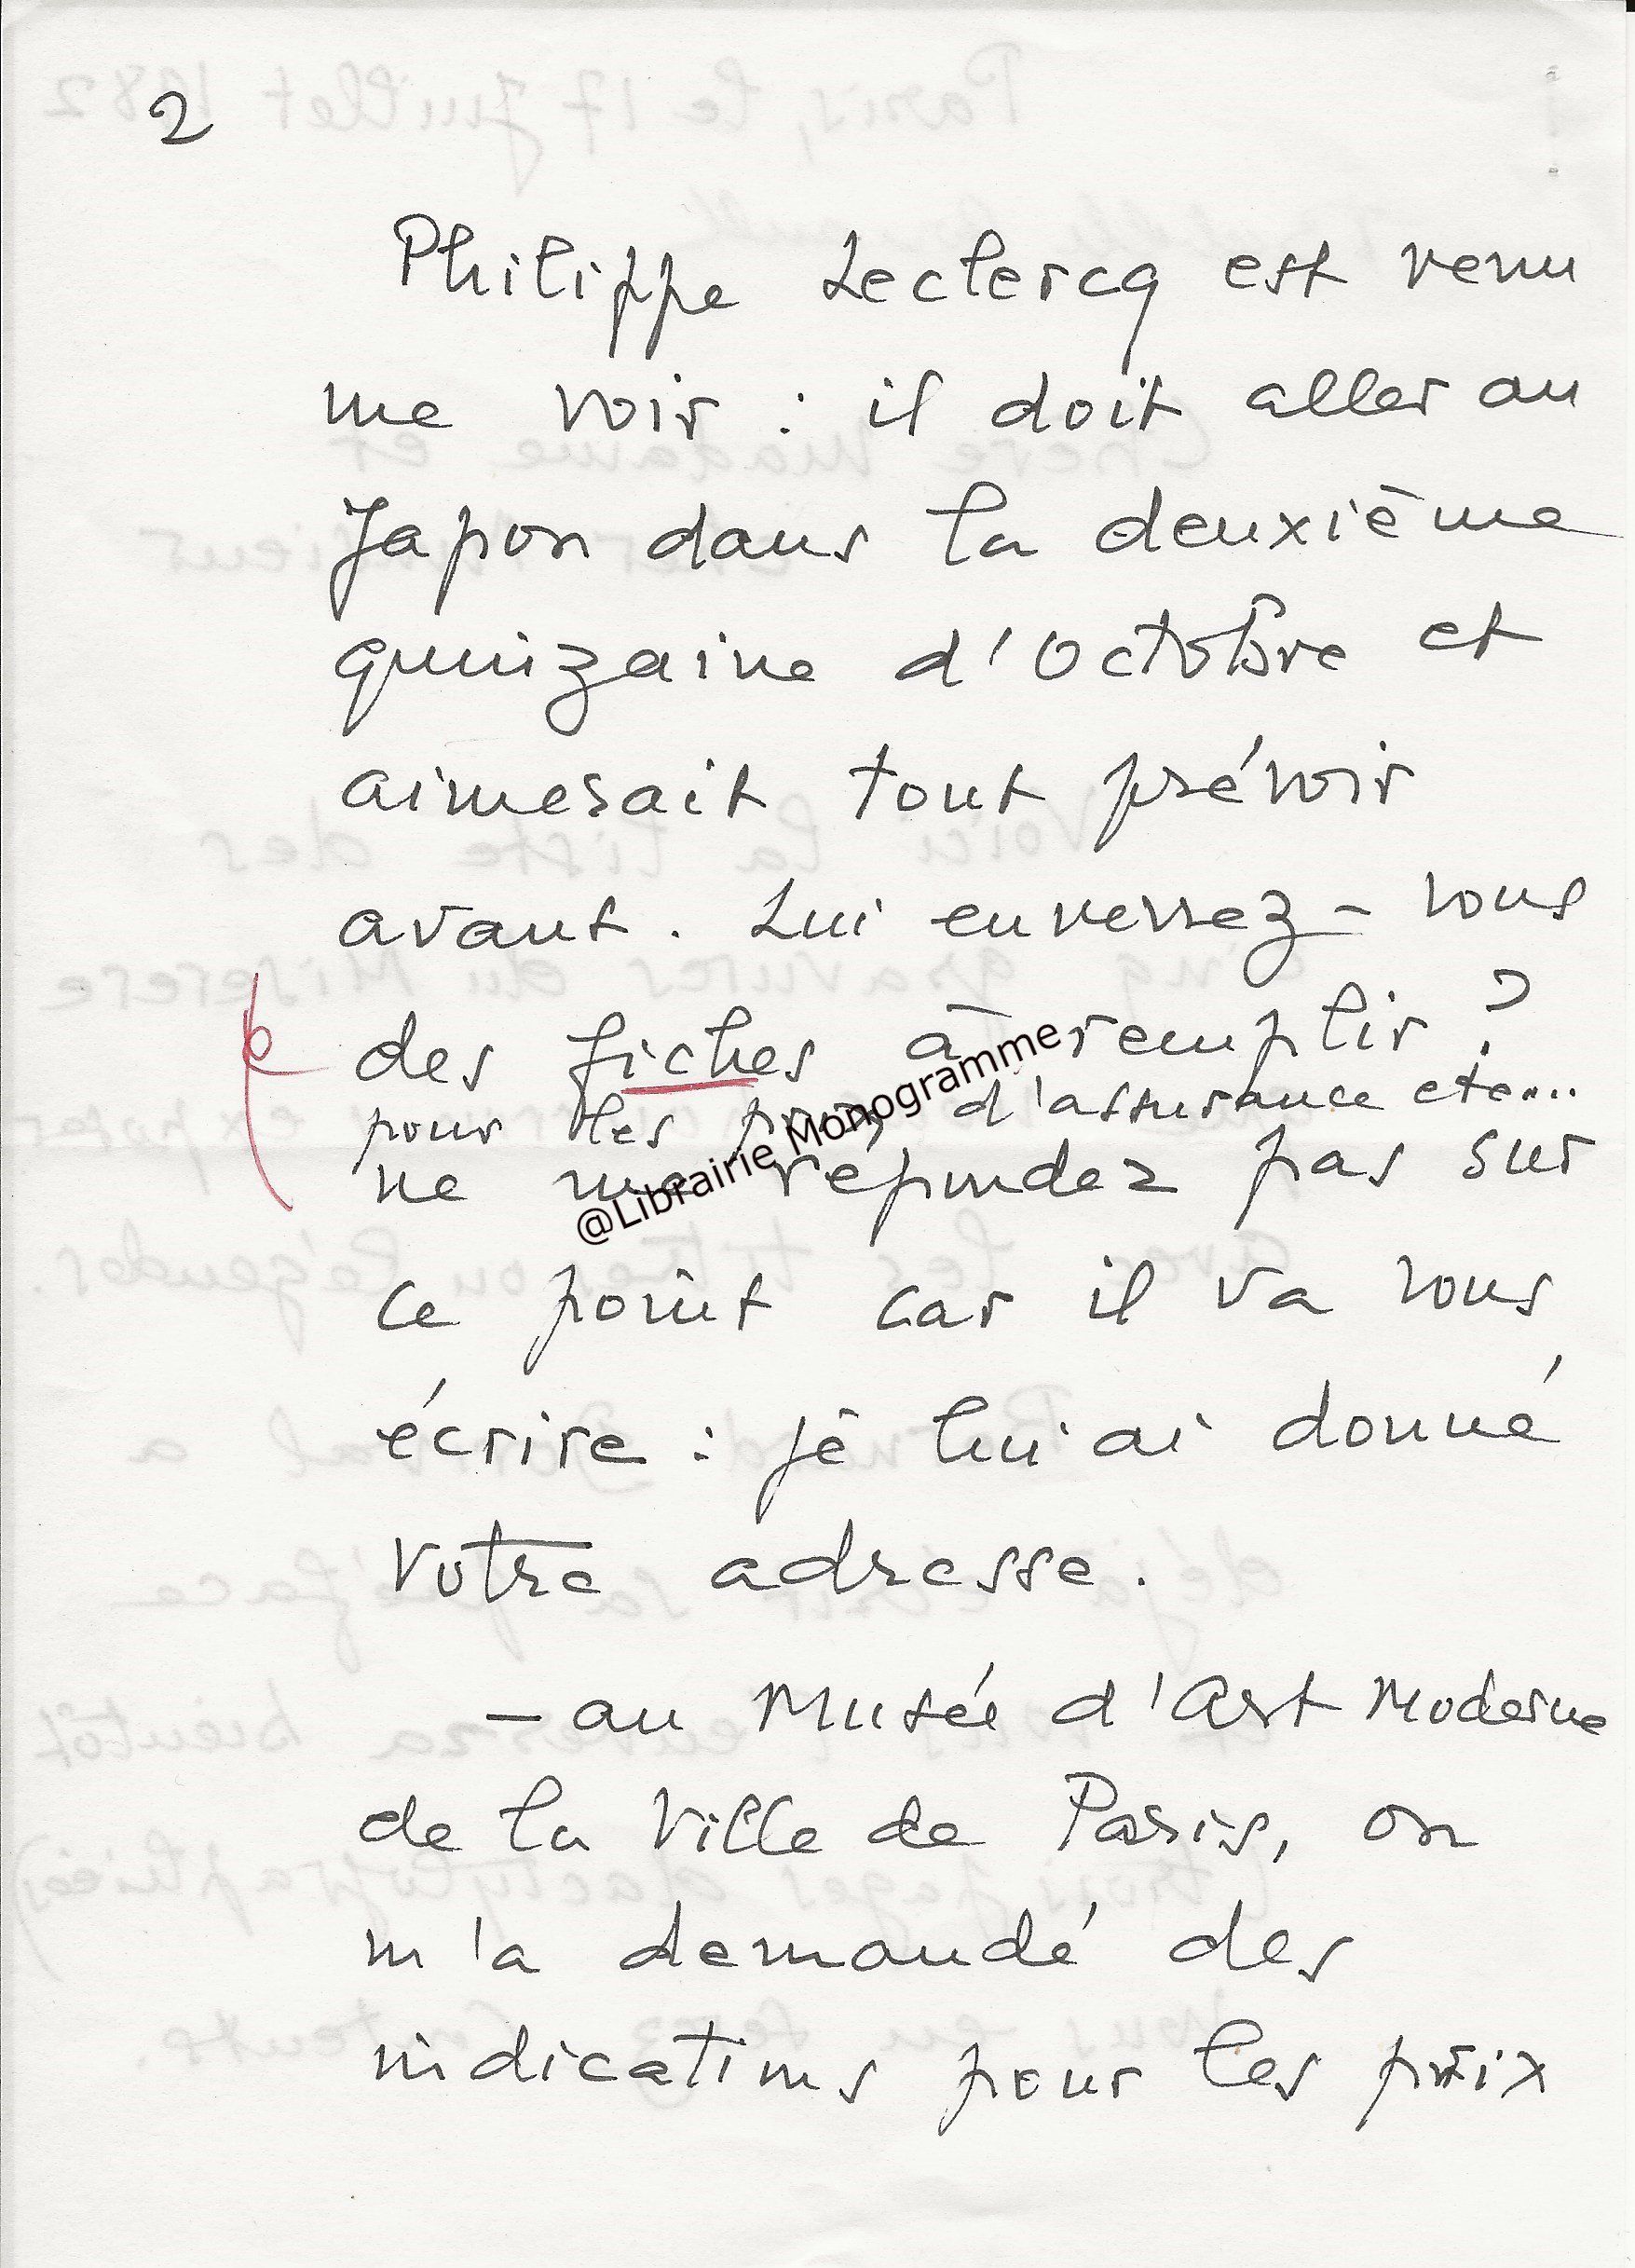 2
Philippe Leclercq est venu
me voir : il doit aller au
Japon dans la deuxième
quinzaine d'Octobre et
aimerait tout prévoir
avant. Lui enverrez-vous
des fiches à remplir ?
pour les prix, d'assurance etc...
ne me répondez pas sur
@Librairie Monogramme
ce point car il va vous
écrire : je lui ai donné
votre adresse.
- au Musée d'Art Moderne
de la Ville de Paris, on
m'a demandé des
indications pour les prix